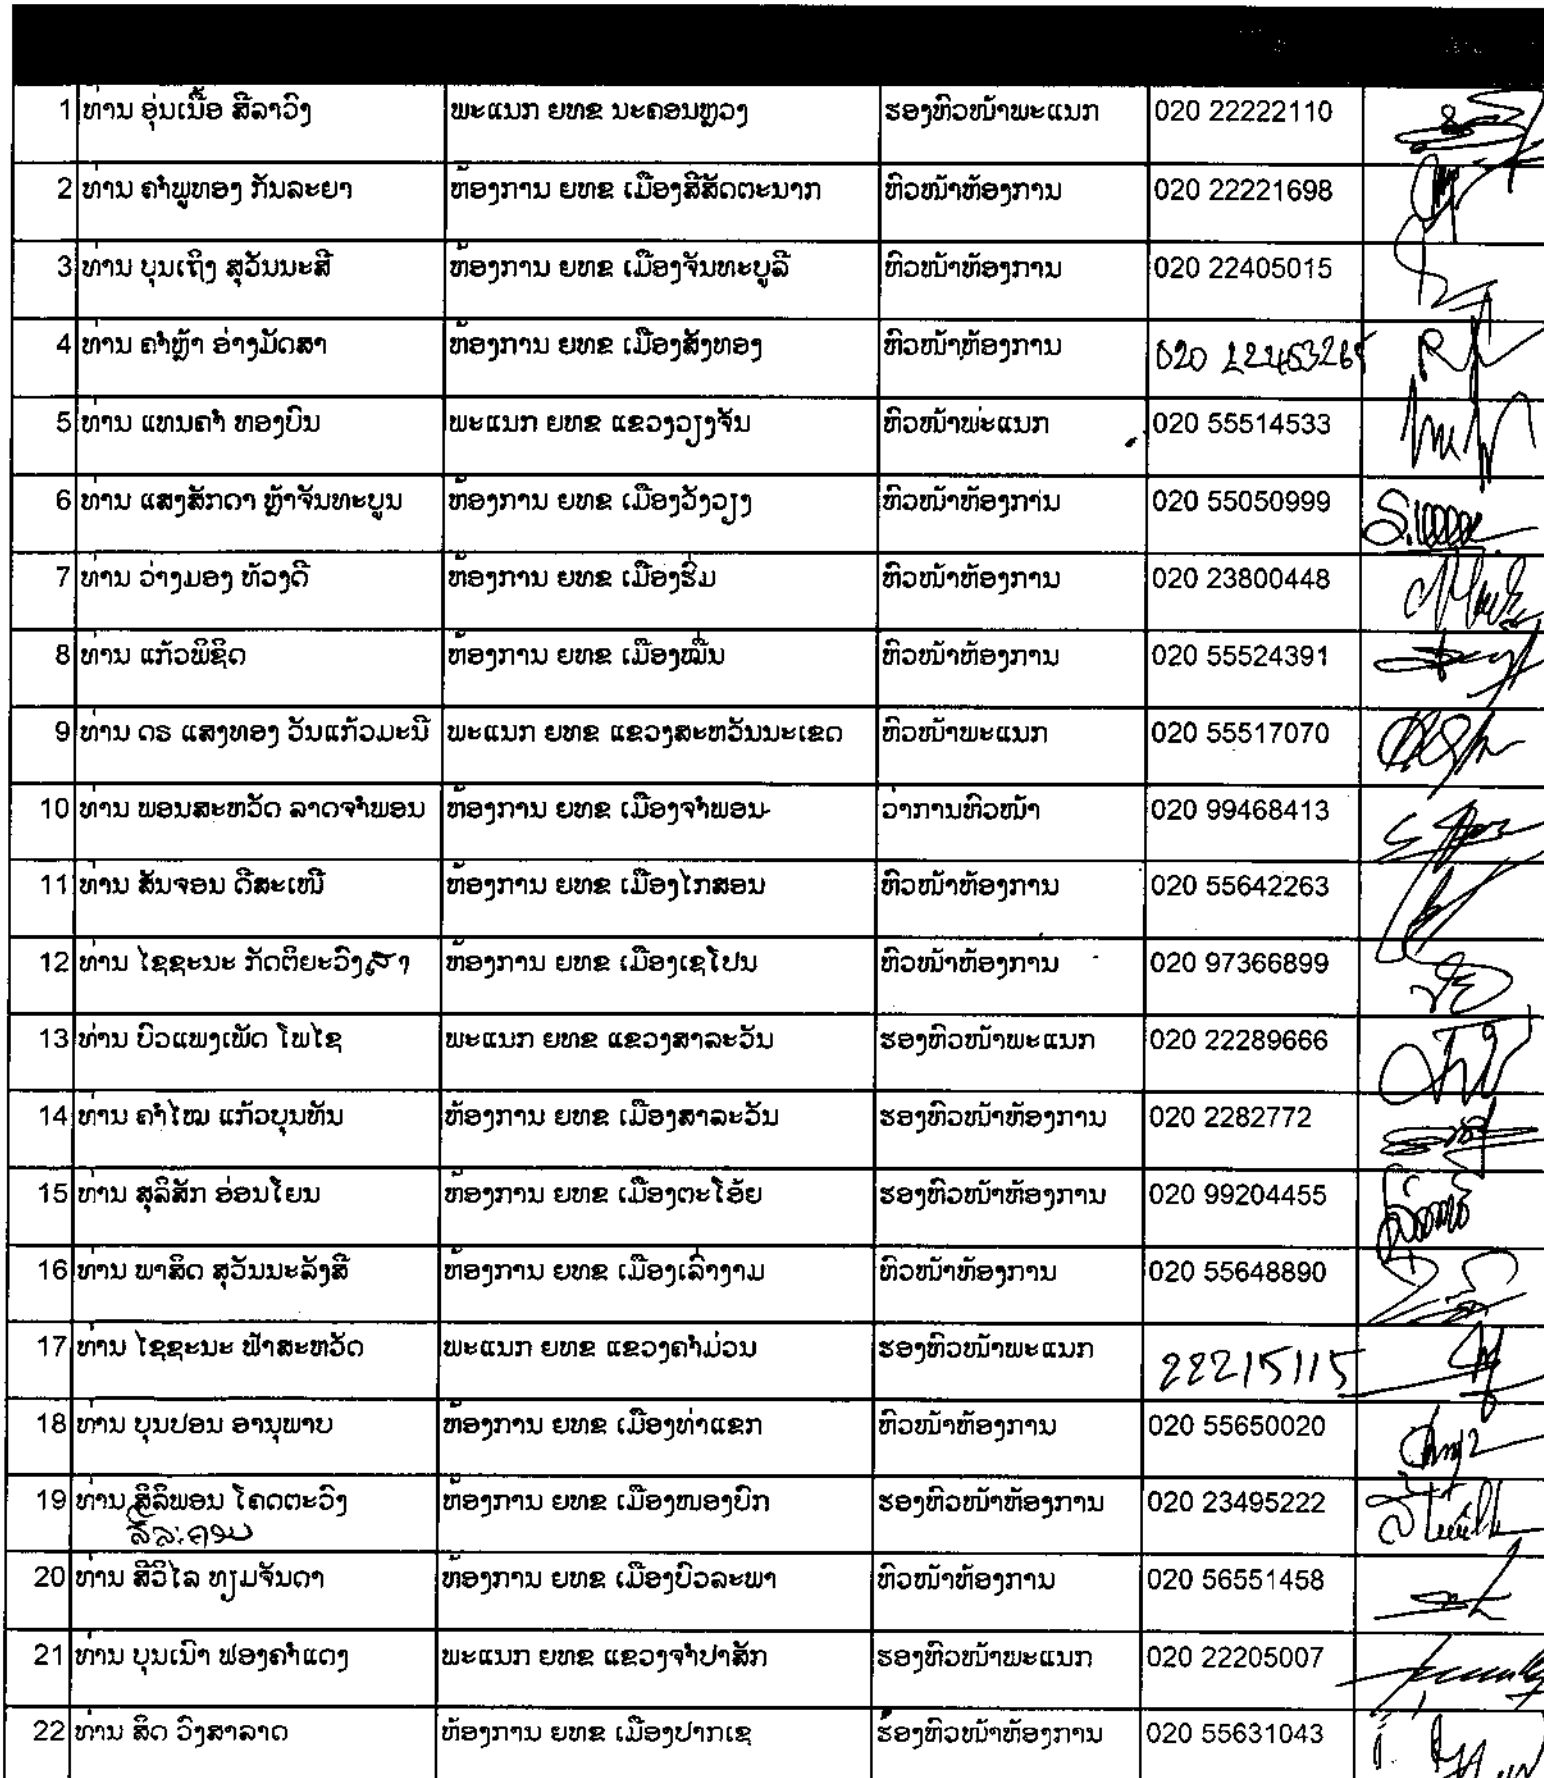 1 ທ່ານ ອຸ່ນເນື້ອ ສີລາວົງ ພະແນກ ຍທຂ ນະຄອນຫຼວງ ຮອງຫົວໜ້າພະແນກ 020 22222110
2 ທ່ານ ຄຳພູທອງ ກັນລະຍາ ຫ້ອງການ ຍທຂ ເມືອງສີສັດຕະນາກ ຫົວໜ້າຫ້ອງການ 020 22221698
3 ທ່ານ ບຸນເຖິງ ສຸວັນນະສີ ຫ້ອງການ ຍທຂ ເມືອງຈັນທະບູລີ ຫົວໜ້າຫ້ອງການ 020 22405015
4 ທ່ານ ຄຳຫຼ້າ ອ່າງມັດສາ ຫ້ອງການ ຍທຂ ເມືອງສັງທອງ ຫົວໜ້າຫ້ອງການ 020
5 ທ່ານ ແທນຄຳ ທອງບົນ ພະແນກ ຍທຂ ແຂວງວຽງຈັນ ຫົວໜ້າພະແນກ 020 55514533
6 ທ່ານ ແສງສັກດາ ຫຼ້າຈັນທະບູນ ຫ້ອງການ ຍທຂ ເມືອງວັງວຽງ ຫົວໜ້າຫ້ອງການ 020 55050999
7 ທ່ານ ວ່າງມອງ ທ້ວງດີ ຫ້ອງການ ຍທຂ ເມືອງຮົ່ມ ຫົວໜ້າຫ້ອງການ 020 23800448
8 ທ່ານ ແກ້ວພິຊິດ ຫ້ອງການ ຍທຂ ເມືອງໝື່ນ ຫົວໜ້າຫ້ອງການ 020 55524391
9 ທ່ານ ດຣ ແສງທອງ ວັນແກ້ວມະນີ ພະແນກ ຍທຂ ແຂວງສະຫວັນນະເຂດ ຫົວໜ້າພະແນກ 020 55517070
10 ທ່ານ ພອນສະຫວັດ ລາດຈຳພອນ ຫ້ອງການ ຍທຂ ເມືອງຈຳພອນ ວ່າການຫົວໜ້າ 020 99468413
11 ທ່ານ ສັນຈອນ ດີສະເໜີ ຫ້ອງການ ຍທຂ ເມືອງໄກສອນ ຫົວໜ້າຫ້ອງການ 020 55642263
12 ທ່ານ ໄຊຊະນະ ກັດຕິຍະວົງສາ ຫ້ອງການ ຍທຂ ເມືອງເຊໂປນ ຫົວໜ້າຫ້ອງການ 020 97366899
13 ທ່ານ ບົວແພງເພັດ ໂພໄຊ ພະແນກ ຍທຂ ແຂວງສາລະວັນ ຮອງຫົວໜ້າພະແນກ 020 22289666
14 ທ່ານ ຄຳໄໝ ແກ້ວບຸນທັນ ຫ້ອງການ ຍທຂ ເມືອງສາລະວັນ ຮອງຫົວໜ້າຫ້ອງການ 020 2282772
15 ທ່ານ ສຸລິສັກ ອ່ອນໂຍນ ຫ້ອງການ ຍທຂ ເມືອງຕະໂອ້ຍ ຮອງຫົວໜ້າຫ້ອງການ 020 99204455
16 ທ່ານ ພາສິດ ສຸວັນນະລັງສີ ຫ້ອງການ ຍທຂ ເມືອງເລົ່າງາມ ຫົວໜ້າຫ້ອງການ 020 55648890
17 ທ່ານ ໄຊຊະນະ ຟ້າສະຫວັດ ພະແນກ ຍທຂ ແຂວງຄຳມ່ວນ ຮອງຫົວໜ້າພະແນກ 22215115
18 ທ່ານ ບຸນປອນ ອານຸພາບ ຫ້ອງການ ຍທຂ ເມືອງທ່າແຂກ ຫົວໜ້າຫ້ອງການ 020 55650020
19 ທ່ານ ສິລິພອນ ໂຄດຕະວົງ ຫ້ອງການ ຍທຂ ເມືອງໜອງບົກ ຮອງຫົວໜ້າຫ້ອງການ 020 23495222
20 ທ່ານ ສີວິໄລ ທຽມຈັນດາ ຫ້ອງການ ຍທຂ ເມືອງບົວລະພາ ຫົວໜ້າຫ້ອງການ 020 56551458
21 ທ່ານ ບຸນເນົາ ຟອງຄຳແດງ ພະແນກ ຍທຂ ແຂວງຈຳປາສັກ ຮອງຫົວໜ້າພະແນກ 020 22205007
22 ທ່ານ ສິດ ວົງສາລາດ ຫ້ອງການ ຍທຂ ເມືອງປາກເຊ ຮອງຫົວໜ້າຫ້ອງການ 020 55631043